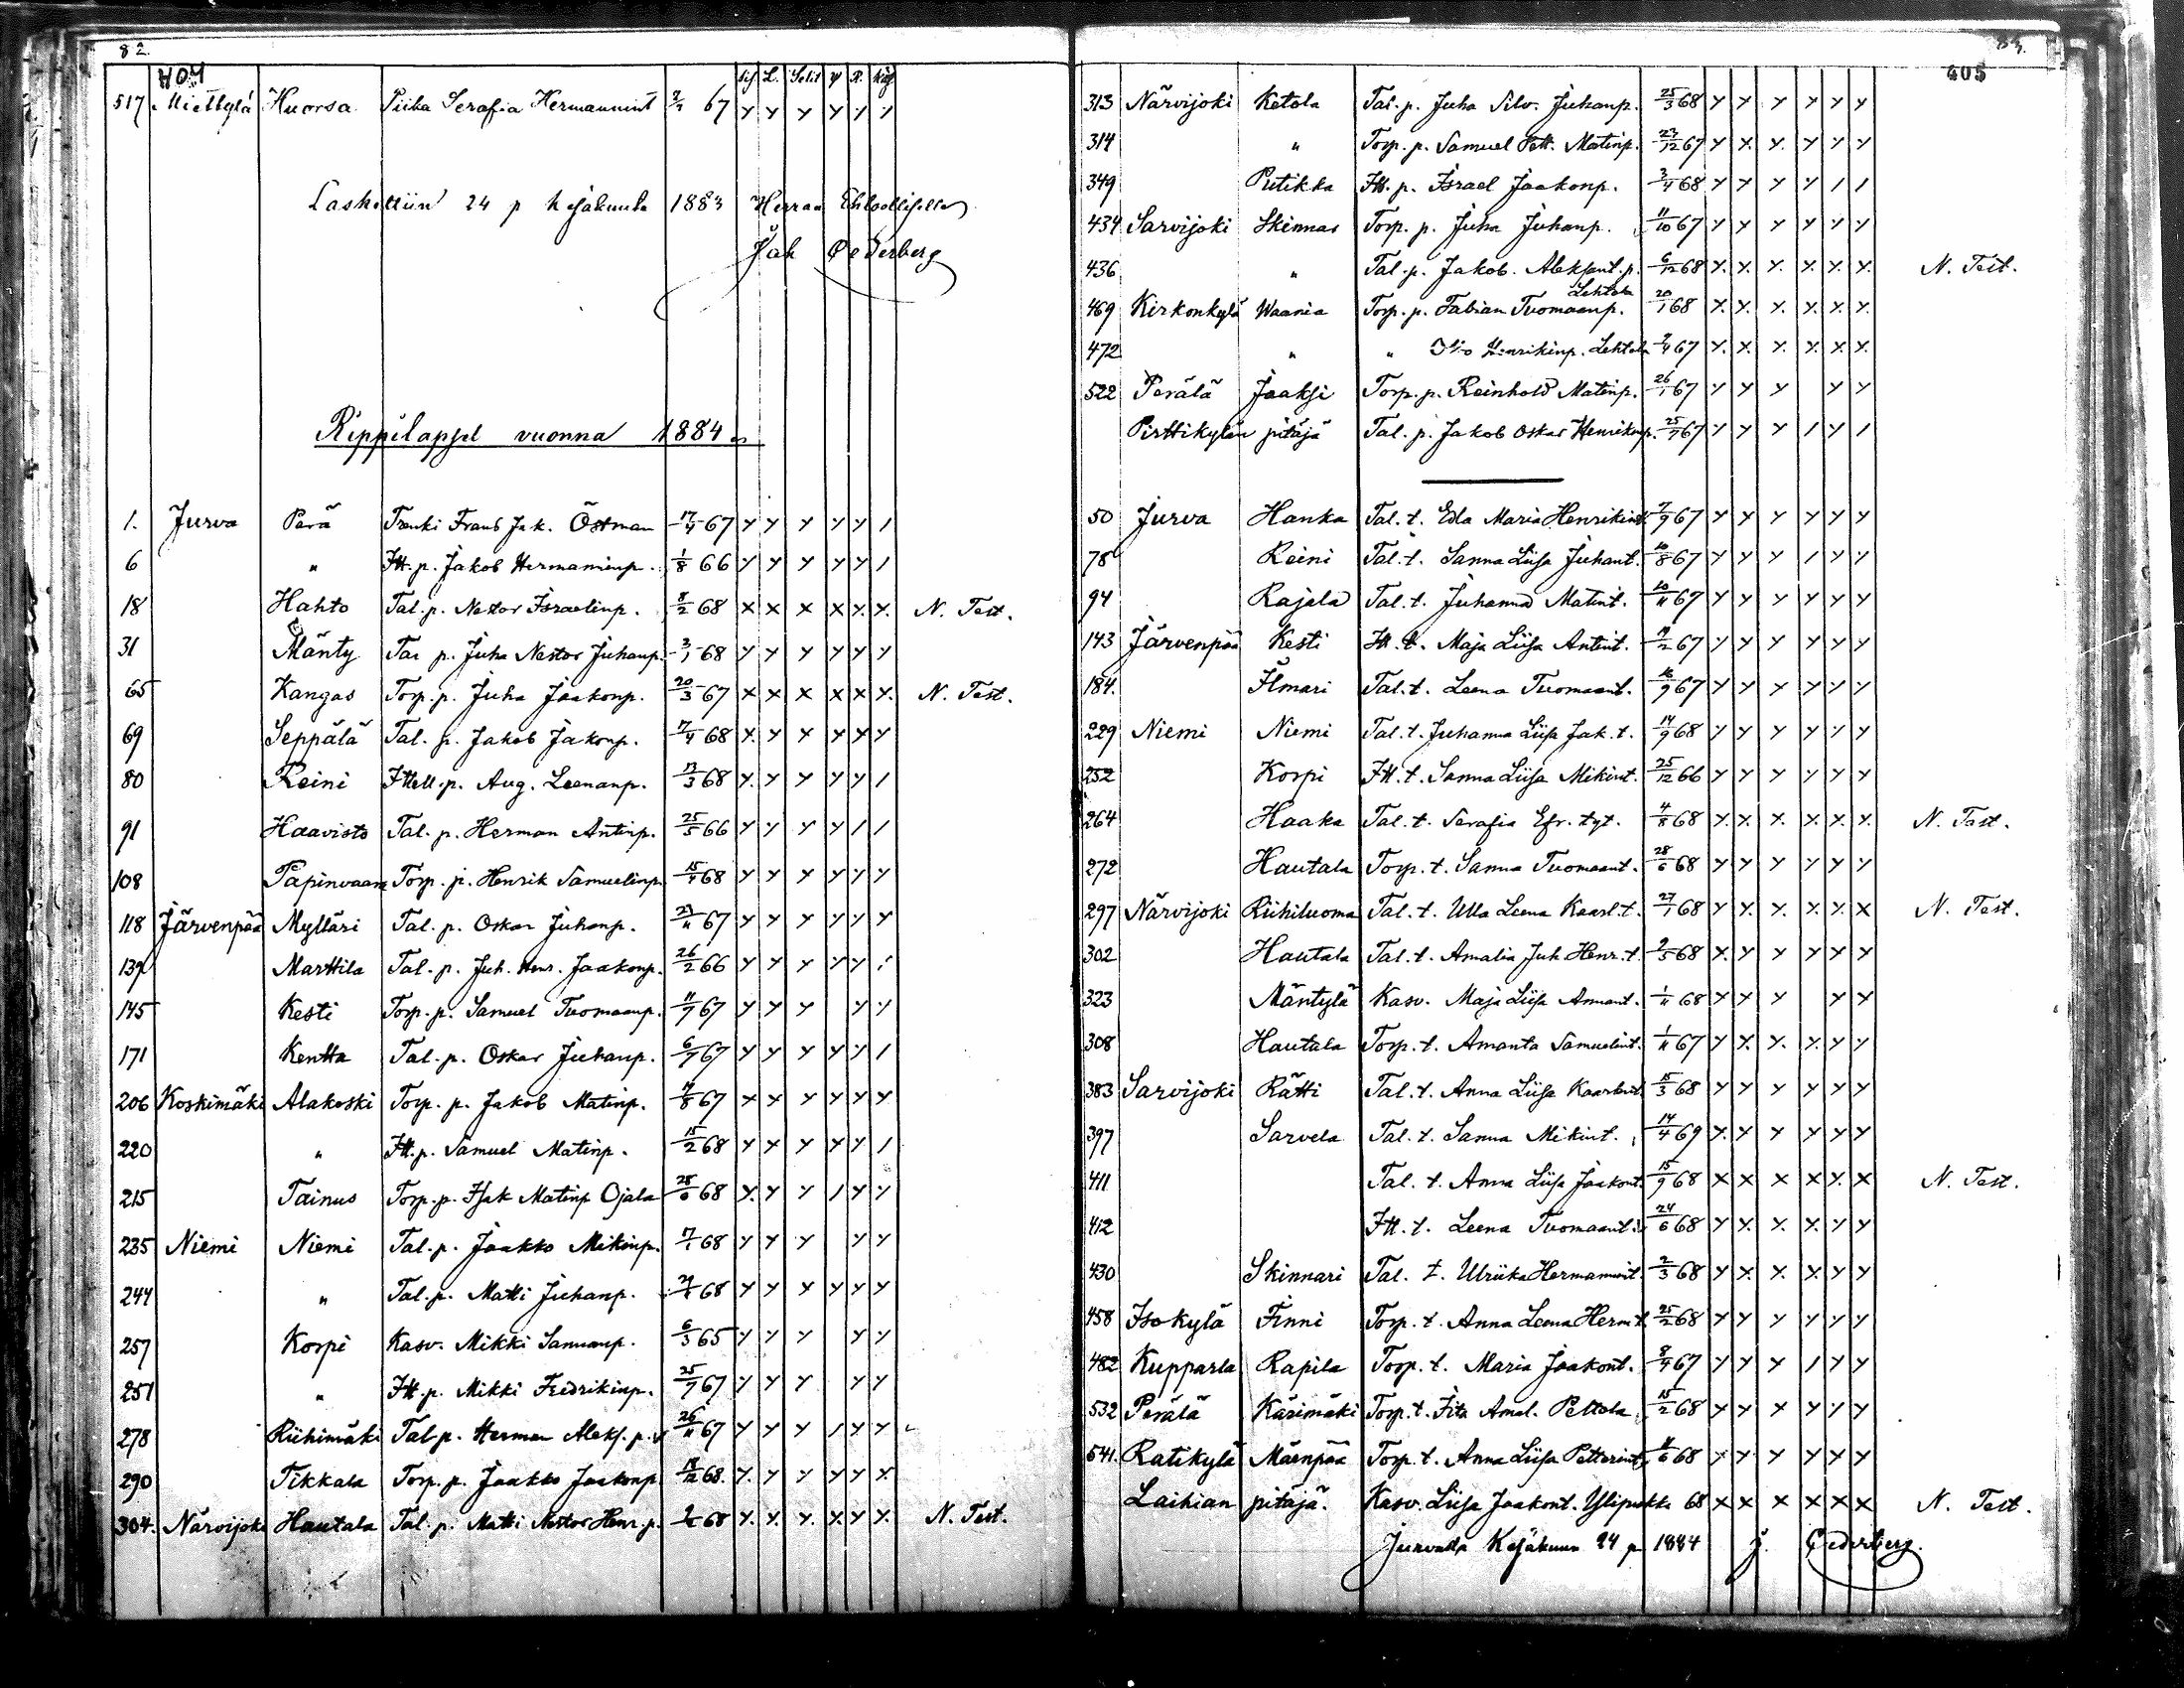 82.
404
Sis L. Selit Y R. Käy
517 Miettylä Huorsa Piika Serafia Hermannint 67 y y y y y /
Laskettiin 24 p kesäkuuta 1883 Herran Ehtoolliselle
Jak Cederberg
Rippilapset vuonna 1884
1. Jurva Perä Trenki Frans Jak. Östman 17/4 67 y y y y y /
6 " Itt. p. Jakob Hermaninp. 1/8 66 y y y y y /
18 Hahto Tal. p. Nestor Israelinp. 8/2 68 x x x x x x. N. Test.
31 Mänty Tal p. Juha Nestor Juhanp. 3/1 68 y y y y y y
65 Kangas Torp. p. Juha Jaakonp. 20/3 67 x x x x x x. N. Test.
69 Seppälä Tal. p. Jakob Jakonp. 7/4 68 x. y y y y y
80 Reini Ittell. p. Aug. Leenanp. 13/3 68 y. y y y y /
91 Haavisto Tal. p. Herman Antinp. 25/5 66 y y y y / /
108 Papinvaara Torp. p. Henrik Samuelinp. 15/4 68 y y y y y y
118 Järvenpää Mylläri Tal. p. Oskar Juhanp. 23/11 67 y y y y y y
139 Marttila Tal. p. Juh. Henr. Jaakonp. 26/2 66 y y y y y /
145 Kesti Torp. p. Samuel Tuomaanp. 11/7 67 y y y y y
171 Kentta Tal. p. Oskar Juhanp. 6/7 67 y y y y y /
206 Koskimäki Alakoski Torp. p. Jakob Matinp. 7/8 67 y y y y y y
220 " Itt. p. Samuel Matinp. 15/2 68 y y y y y /
215 Tainus Torp. p. Isak Matinp Ojala 28/6 68 y. y y / y y
235 Niemi Niemi Tal. p. Jaakko Mikinp. 7/1 68 y y y y y
244 " Tal. p. Matti Juhanp. 68 y y y y y y
257 Korpi Kasv. Mikki Sannanp. 6/3 65 y y y y y
251 " Itt. p. Mikki Fredrikinp. 25/7 67 y y y y y
278 Riihimäki Tal p. Herman Aleks. p. 26/11 67 y y y / y y
290 Tikkala Torp. p. Jaakko Jaakonp 18/12 68. y. y y y y y.
304. Närvijoki Hautala Tal. p. Matti Nestor Henr. p. 68 y. y. y. x y y. N. Test.
83.
405
313 Närvijoki Ketola Tal. p. Juha Silv. Juhanp. 25/3 68 y y y y y y
314 " Torp. p. Samuel Pett. Matinp. 23/12 67 y x. y. y y y
349 Putikka Itt. p. Israel Jaakonp. 3/4 68 y y y y / /
434 Sarvijoki Skinnar Torp. p. Juha Juhanp. 11/10 67 y y y y y y
436 " Tal. p. Jakob. Aleksant. p. 6/12 68 y. y. y. y. y. y. N. Test.
Lehtola
469 Kirkonkylä Waania Torp. p. Fabian Tuomaanp. 20/1 68 y. y. y. y. y. y.
472 " " Henrikinp. Lehtola 67 y. y. y. y. x. x.
522 Perälä Jaaksi Torp. p. Reinhold Matinp. 26/1 67 y y y y y
Pirttikylän pitäjä Tal. p. Jakob Oskar Henrikinp. 25/7 67 y y y / y /
50 Jurva Hanka Tal. t. Edla Maria Henrikint. 7/9 67 y y y y y y
78 Reini Tal. t. Sanna Liisa Juhant. 10/8 67 y y y / y y
94 Rajala Tal. t. Juhanna Matint. 10/11 67 y y y y y y
143 Järvenpää Kesti Itt. t. Maja Liisa Antint. 67 y y y y y y
184. Ilmari Tal. t. Leena Tuomaant. 16/9 67 y y y y y y
229 Niemi Niemi Tal. t. Juhanna Liisa Jak. t. 14/9 68 y y y y y y
252 Korpi Itt. t. Sanna Liisa Mikint. 25/12 66 y y y y y y
264 Haaka Tal. t. Serafia Efr. tyt. 4/8 68 y. x. x. x. x. x. N. Test.
272 Hautala Torp. t. Sanna Tuomaant. 28/6 68 y y y y y y
297 Närvijoki Riihiluoma Tal. t. Ulla Leena Kaarl. t. 27/1 68 y y. y. y. y. x N. Test.
302 Hautala Tal. t. Amalia Juh Henr. t. 2/5 68 y. y y y y y
323 Mäntylä Kasv. Maja Liisa Annant. 1/11 68 y y y y y
308 Hautala Torp. t. Amanta Samuelint. 1/11 67 y x. y. y. y y
383 Sarvijoki Rätti Tal. t. Anna Liisa Kaarlent. 15/3 68 y y y y y y
397 Sarvela Tal. t. Sanna Mikint. 14/4 69 y. y y y y y
411 Tal. t. Anna Liisa Jaakont. 15/9 68 x x x x x. x N. Test.
412 Itt. t. Leena Tuomaant. 24/6 68 y y. y. x y y
430 Skinnari Tal. t. Ulriika Hermannint. 2/3 68 y y. y. y. y y
458 Isokylä Finni Torp. t. Anna Leena Herm. t. 25/2 68 y y y y y y
482 Kupparla Rapila Torp. t. Maria Jaakont. 8/4 67 y y y / y y
532 Perälä Kärimäki Torp. t. Fita Amal. Peltola 15/2 68 y y y y y y
541. Ratikylä Mäenpää Torp. t. Anna Liisa Petterint. 68 y y y y y y
Laihian pitäjä. Kasv. Liisa Jaakont. Ylipukka 68 x x x x x x N. Test.
Jurvalla Kesäkuun 24 p 1884 J. Cederberg.